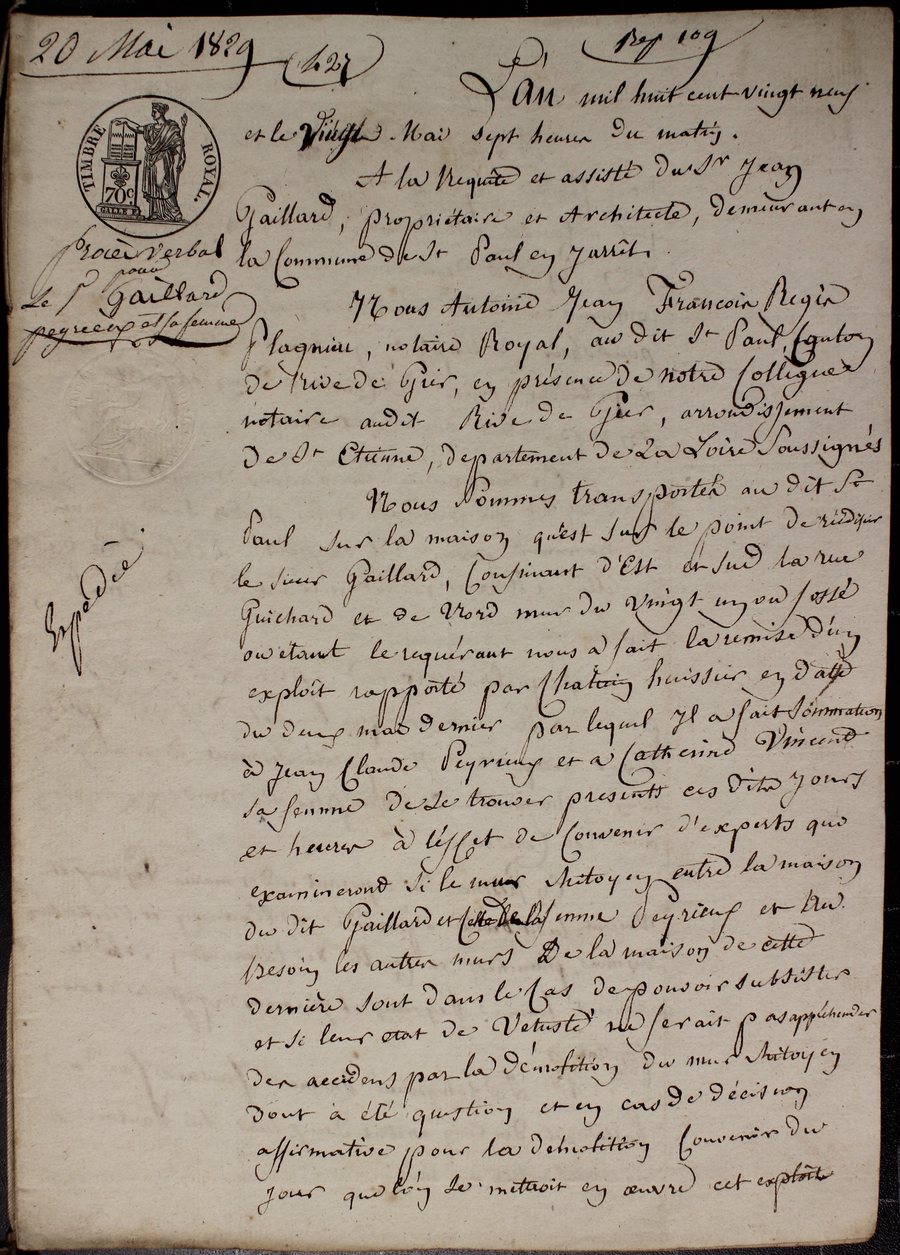 20 Mai 1829
427
Rep 109
TIMBRE ROYAL.
70c
procès verbal
pour
Le Sr Gaillard
peyrieux et sa femme
Expédié.
L'an mil huit cent vingt neuf
et le vingt Mai sept heures du matin.
A la Requete et assisté du Sr Jean
Gaillard, propriétaire et Architecte, demeurant en
la Commune de St Paul en Jarrêt,
Nous Antoine Jean François Regis
Plagnieu, notaire Royal, au dit St Paul, Canton
de rive de Gier, en présence de notre Collégue
notaire audit Rive de Gier, arrondissement
de St Etienne, departement de La Loire Soussignés
Nous Sommes transportés au dit St
Paul sur la maison qu'est sur le point de réédifier
le sieur Gaillard, Confinant d'Est et sud la rue
Guichard et de Nord mur du vingt un ou fossé
ou étant le requérant nous a fait la remise d'un
exploit rapporté par huissier en date
du deux mai dernier par lequel Il a fait Sommation
à Jean Claude Peyrieux et a Catherine Vincent
sa femme de se trouver presents ces dits Jours
et heures à l'effet de Convenir d'experts que
examineront si le mur Mitoyen entre la maison
du dit Gaillard et Celle de la femme Peyrieux et au
besoin les autres murs De la maison de cette
dernière sont dans le Cas de pouvoir subsister
et si leur etat de Vetusté ne ferait pas appréhender
des accidens par la démolition du mur Mitoyen
dont a été question et en cas de décision
affirmative pour la démolition Convenir du
jour que l'on se mettroit en œuvre cet exploit